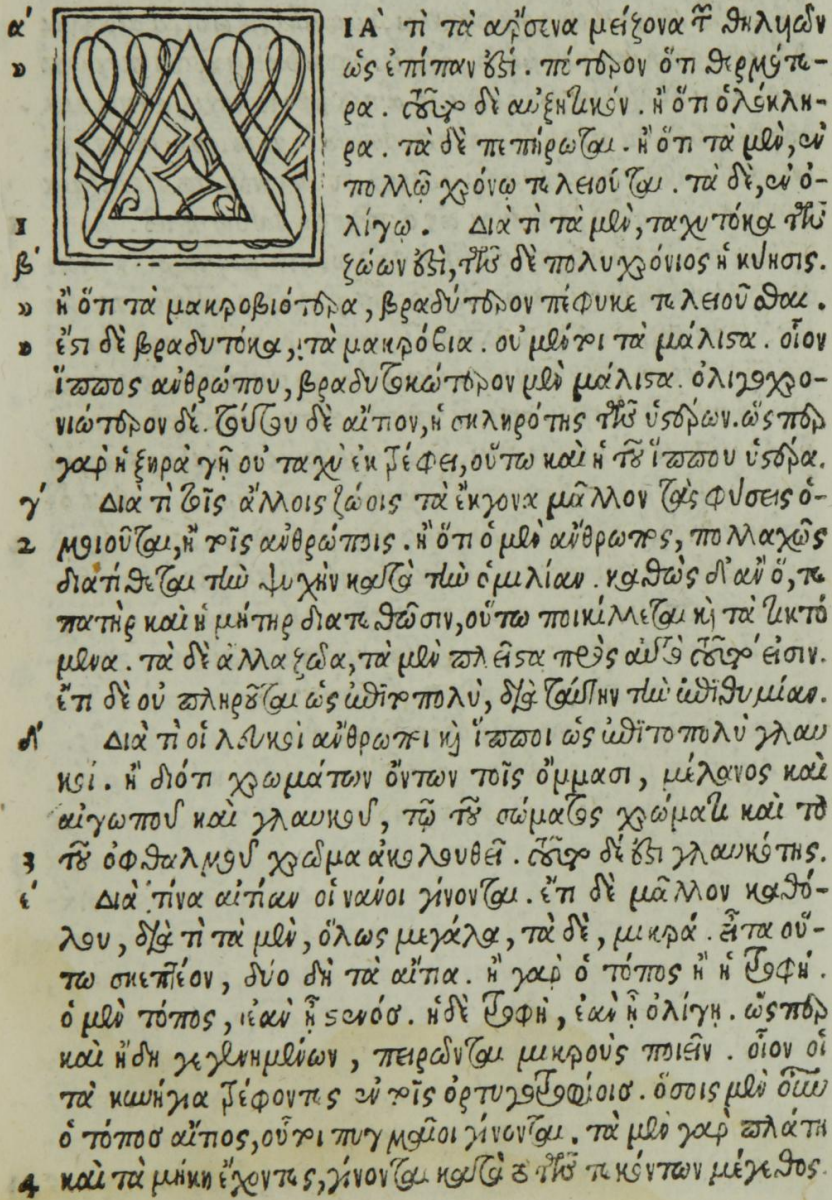 α' ΔΙᾺ τὶ τὰ ἄῤῥενα μείζονα τῶν θηλειῶν
» ὡς ἐπίπαν ἐστί. πότερον ὅτι θερμότε-
ρα. τοῦτο δὲ αὐξητικόν. ἢ ὅτι ὁλόκλη-
ρα. τὰ δὲ πεπήρωται. ἢ ὅτι τὰ μὲν, ἐν
πολλῷ χρόνῳ τελειοῦται. τὰ δὲ, ἐν ὀ-
1 λίγῳ. Διὰ τὶ τὰ μὲν, ταχυτόκα τῶν
β' ζώων ἐστὶ, τῶν δὲ πολυχρόνιος ἡ κύησις.
» ἢ ὅτι τὰ μακροβιότερα, βραδύτερον πέφυκε τελειοῦσθαι.
» ἔστι δὲ βραδυτόκα, τὰ μακρόβια. οὐ μέντοι τὰ μάλιστα. οἷον
ἵππος ἀνθρώπου, βραδυτοκώτερον μὲν μάλιστα. ὀλιγοχρο-
νιώτερον δέ. τούτου δὲ αἴτιον, ἡ σκληρότης τῶν ὑστέρων. ὥσπερ
γὰρ ἡ ξηρὰ γῆ οὐ ταχὺ ἐκτρέφει, οὕτω καὶ ἡ τοῦ ἵππου ὑστέρα.
γ' Διὰ τὶ τοῖς ἄλλοις ζώοις τὰ ἔκγονα μᾶλλον τὰς φύσεις ὁ-
2 μοιοῦται, ἢ τοῖς ἀνθρώποις. ἢ ὅτι ὁ μὲν ἄνθρωπος, πολλαχῶς
διατίθεται τὴν ψυχὴν κατὰ τὴν ὁμιλίαν. καθὼς δ' ἂν ὅ, τε
πατὴρ καὶ ἡ μήτηρ διατεθῶσιν, οὕτω ποικίλλεται καὶ τὰ τικτό
μενα. τὰ δὲ ἄλλα ζῶα, τὰ μὲν πλεῖστα πρὸς αὐτὸ τοῦτό εἰσιν.
ἔτι δὲ οὐ πληροῦται ὡς ἐπιτοπολὺ, διὰ ταύτην τὴν ἐπιθυμίαν.
δ' Διὰ τὶ οἱ λευκοὶ ἄνθρωποι καὶ ἵπποι ὡς ἐπιτοπολὺ γλαυ
κοί. ἢ διότι χρωμάτων ὄντων τοῖς ὄμμασι, μέλανος καὶ
αἰγωποῦ καὶ γλαυκοῦ, τῷ τοῦ σώματος χρώματι καὶ τὸ
3 τοῦ ὀφθαλμοῦ χρῶμα ἀκολουθεῖ. τοῦτο δέ ἐστι γλαυκότης.
ε' Διὰ τίνα αἰτίαν οἱ νάνοι γίνονται. ἔτι δὲ μᾶλλον καθό-
λου, διὰ τὶ τὰ μὲν, ὅλως μεγάλα, τὰ δὲ, μικρά. εἶτα οὕ-
τω σκεπτέον, δύο δὴ τὰ αἴτια. ἢ γὰρ ὁ τόπος ἢ ἡ τροφή.
ὁ μὲν τόπος, ἐὰν ᾖ στενόσ. ἡ δὲ τροφὴ, ἐὰν ᾖ ὀλίγη. ὥσπερ
καὶ ἤδη γεγενημένων, πειρῶνται μικροὺς ποιεῖν. οἷον οἱ
τὰ κυνίγια τρέφοντες ἐν τοῖς ὀρτυγοτροφίοισ. ὅσοις μὲν οὖν
ὁ τόποσ αἴτιος, οὗτοι πυγμαῖοι γίνονται. τὰ μὲν γὰρ πλάτη
4 καὶ τὰ μήκη ἔχοντες, γίνονται κατὰ τὸ τῶν τεκόντων μέγεθος